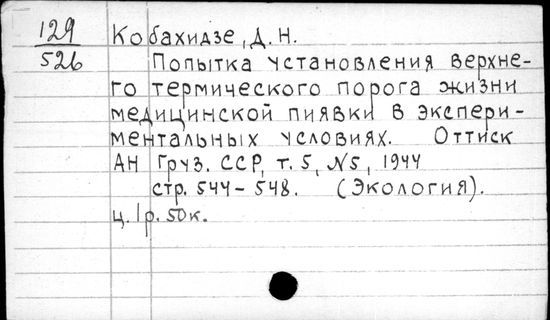 129
526
Кобахидзе, Д. Н.
Попытка установления верхне-
го термического порога жизни
медицинской пиявки в экспери-
ментальных условиях. Оттиск
АН Груз. ССР, т. 5, №5, 1944
стр. 544-548. (Экология).
ц. 1р. 50к.